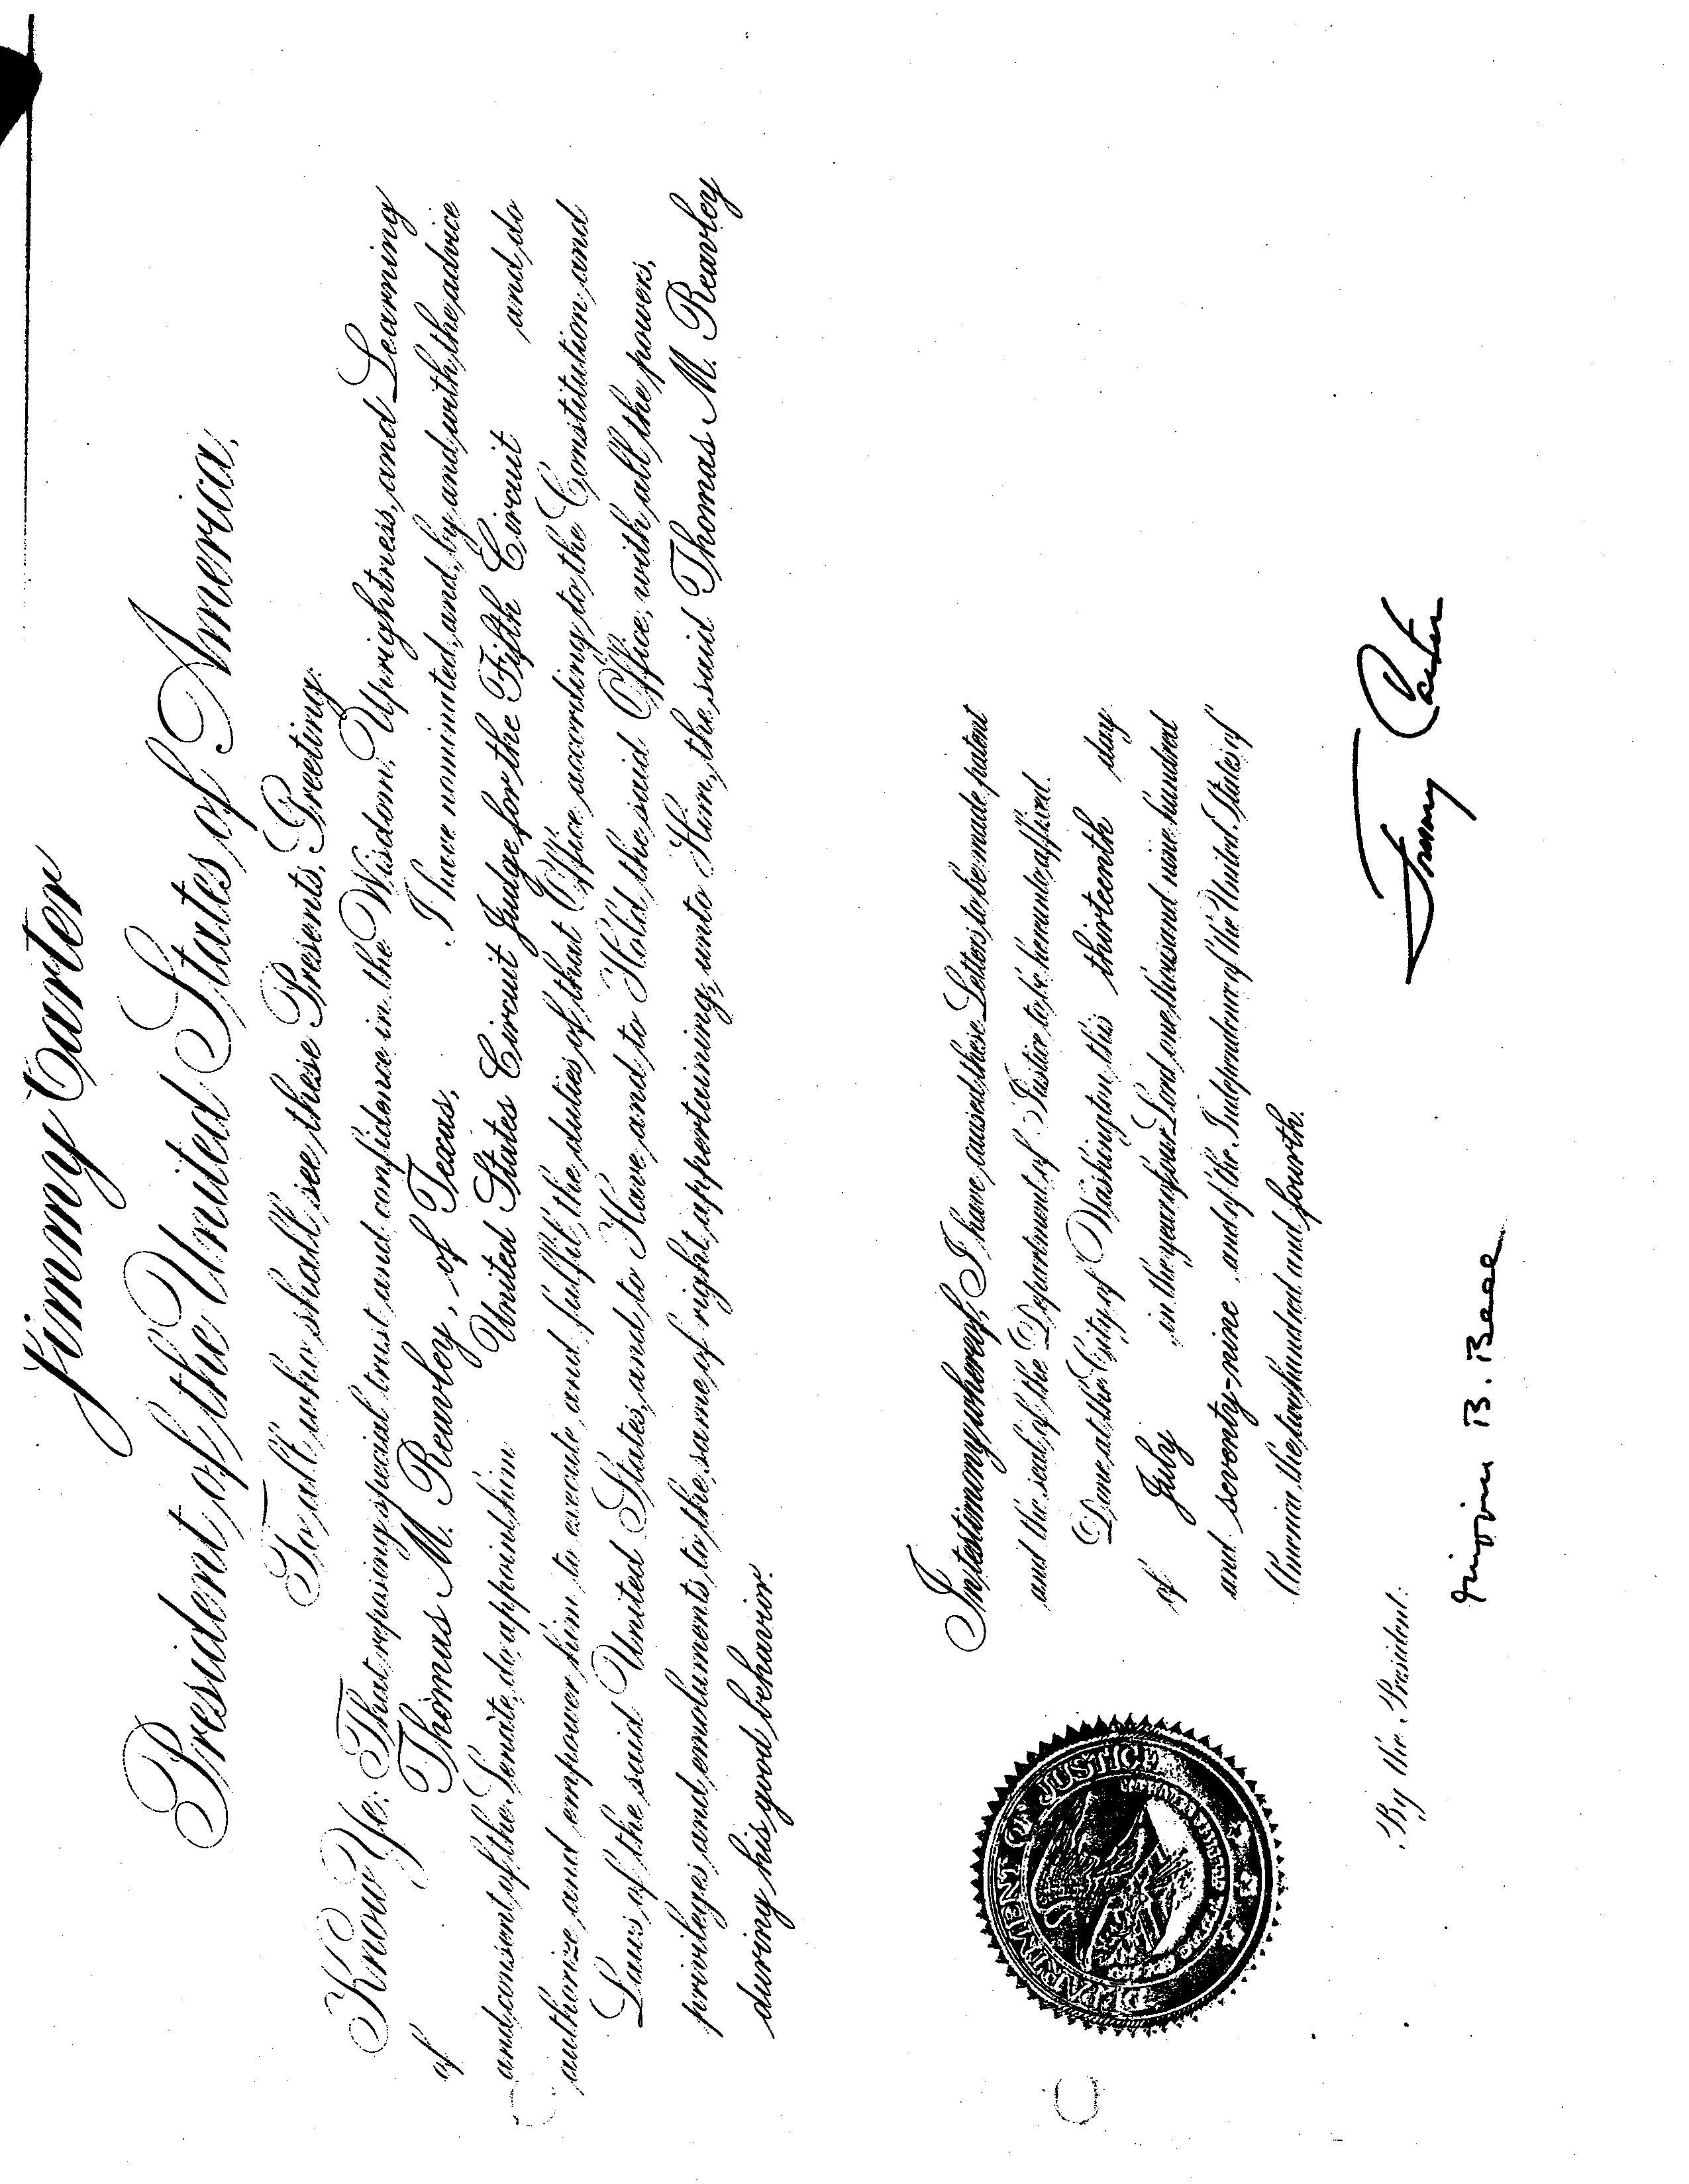 Jimmy Carter
President of the United States of America,
To all who shall see these Presents, Greeting:
Know Ye; That reposing special trust and confidence in the Wisdom, Uprightness, and Learning
of Thomas M. Reavley, of Texas, I have nominated, and, by and with the advice
and consent of the Senate, do appoint him United States Circuit Judge for the Fifth Circuit and do
authorize and empower him to execute and fulfil the duties of that Office according to the Constitution, and
Laws of the said United States, and to Have and to Hold the said Office, with all the powers,
privileges and emoluments to the same of right appertaining, unto Him, the said Thomas M. Reavley
during his good behavior.
In testimony whereof, I have caused these Letters to be made patent
and the seal of the Department of Justice to be hereunto affixed.
Done at the City of Washington, this thirteenth day
of July in the year of our Lord one thousand nine hundred
and seventy-nine and of the Independence of the United States of
America the two hundred and fourth.
DEPARTMENT OF JUSTICE
Jimmy Carter
By the President:
Griffin B. Bell